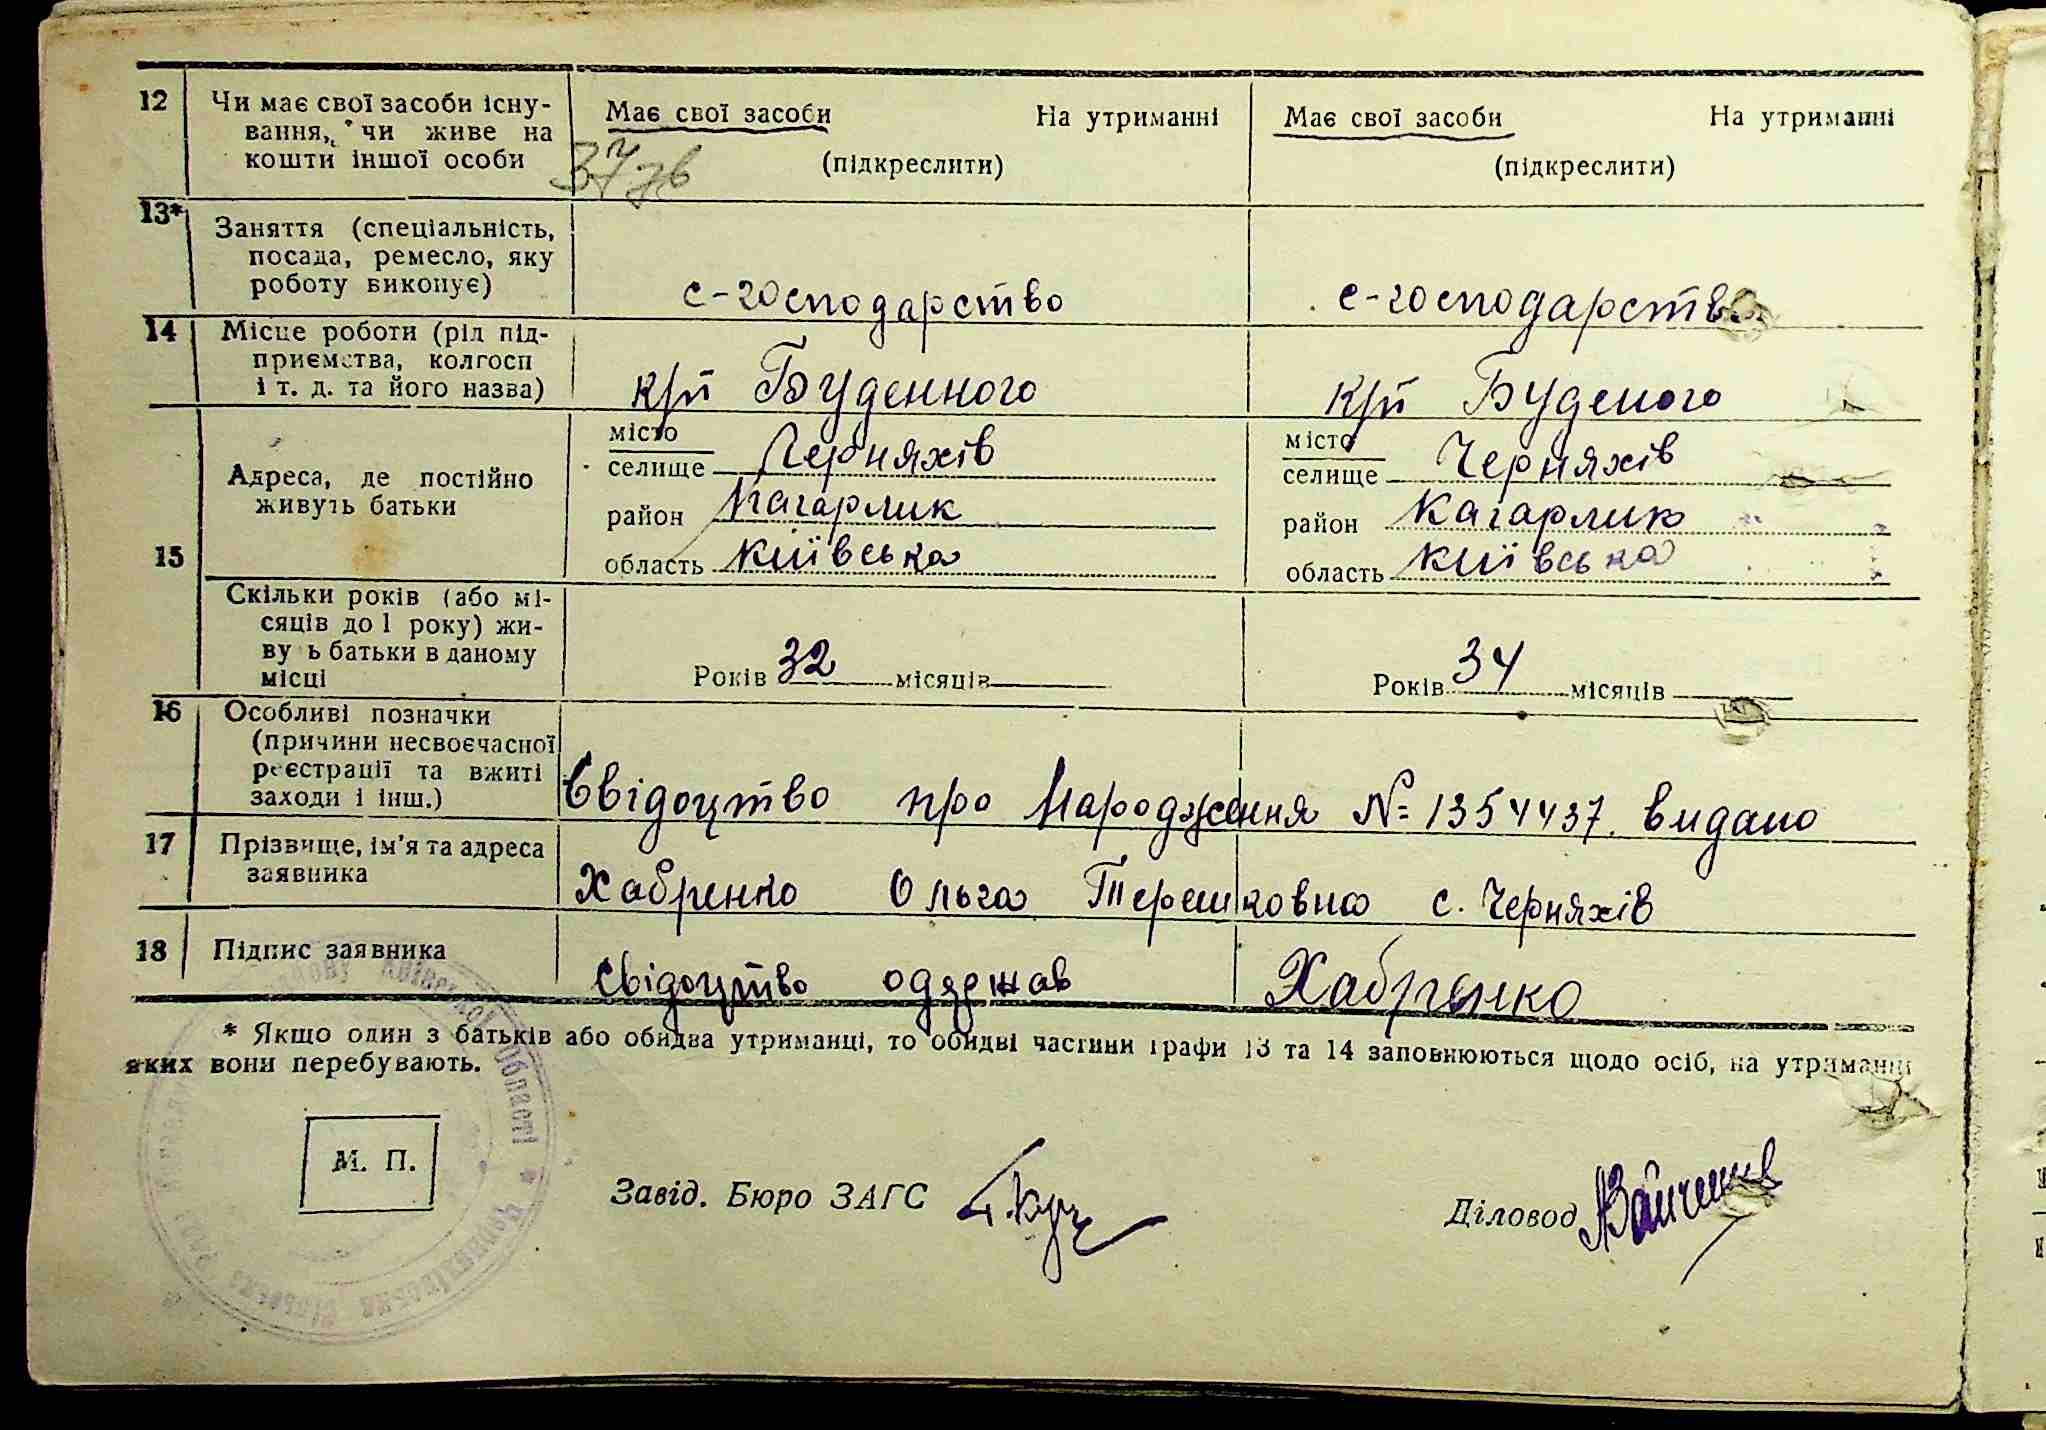 12 Чи має свої засоби існу-
вання, чи живе на
кошти іншої особи
Має свої засоби На утриманні
(підкреслити)
Має свої засоби На утриманні
(підкреслити)
37 зв
13* Заняття (спеціальність,
посада, ремесло, яку
роботу виконує)
с-господарство
с-господарство
14 Місце роботи (рід під-
приємства, колгосп
і т. д. та його назва)
к/п Буденного
к/п Буденого
15
Адреса, де постійно
живуть батьки
місто
селище Черняхів
район Кагарлик
область Київська
місто
селище Черняхів
район Кагарлик
область Київська
Скільки років (або мі-
сяців до 1 року) жи-
ву ь батьки в даному
місці
Років 32 місяців
Років 34 місяців
16 Особливі позначки
(причини несвоєчасної
реєстрації та вжиті
заходи і інш.)
Свідоцтво про Народження № 1354437. видано
17 Прізвище, ім'я та адреса
заявника
Хабренко Ольга Терешковна с. Черняхів
18 Підпис заявника
Свідоцтво одержав Хабренко
* Якщо один з батьків або обидва утриманці, то обидві частини графи 13 та 14 заповнюються щодо осіб, на утриманні
яких вони перебувають.
М. П.
Завід. Бюро ЗАГС
Діловод
району Київської Області * Черняхівська Сільська Рада